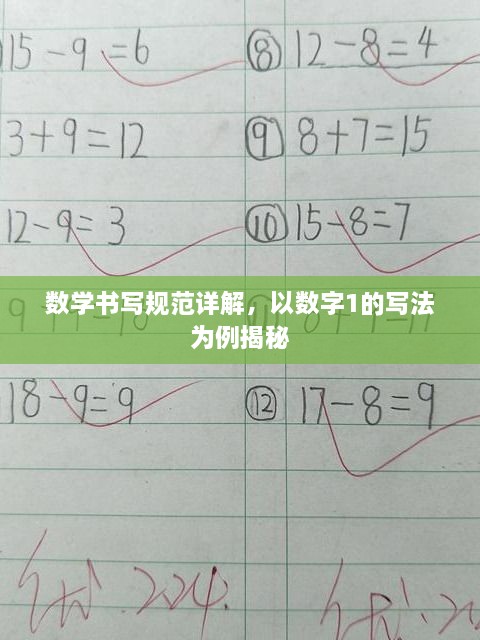 15-9=6 ⑧ 12-8=4
3+9=12 ⑨ 8+7=15
12-9=3 ⑩ 15-8=7
数学书写规范详解，以数字1的写法
为例揭秘
18-9=9 ⑫ 17-8=9
优 2.24. 优